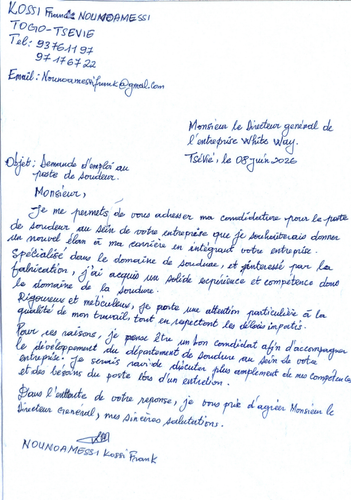 KOSSI Franck NOUNOAMESSI
TOGO-TSEVIE
Tel: 93761197
97176722
Email: Nounoamessifrank@gmail.com
Monsieur le Directeur général de
l'entreprise White Way.
Tsévié, le 08 juin 2026
Objet: Demande d'emploi au
poste de soudeur.
Monsieur,
Je me permets de vous adresser ma candidature pour le poste
de soudeur au sein de votre entreprise que je souhaiterais donner
un nouvel élan à ma carrière en intégrant votre entreprise.
Spécialisé dans le domaine de soudure, et intéressé par la
fabrication, j'ai acquis un solide expérience et compétence dans
le domaine de la soudure.
Rigoureux et méticuleux, je porte une attention particulière à la
qualité de mon travail, tout en respectant les délais impartis.
Pour ces raisons, je pense être un bon candidat afin d'accompagner
le développement du département de soudure au sein de votre
entreprise. Je serais ravi de discuter plus amplement de mes compétences
et des besoins du poste lors d'un entretien.
Dans l'attente de votre réponse, je vous prie d'agréer Monsieur le
Directeur Général, mes sincères salutations.
NOUNOAMESSI Kossi Frank